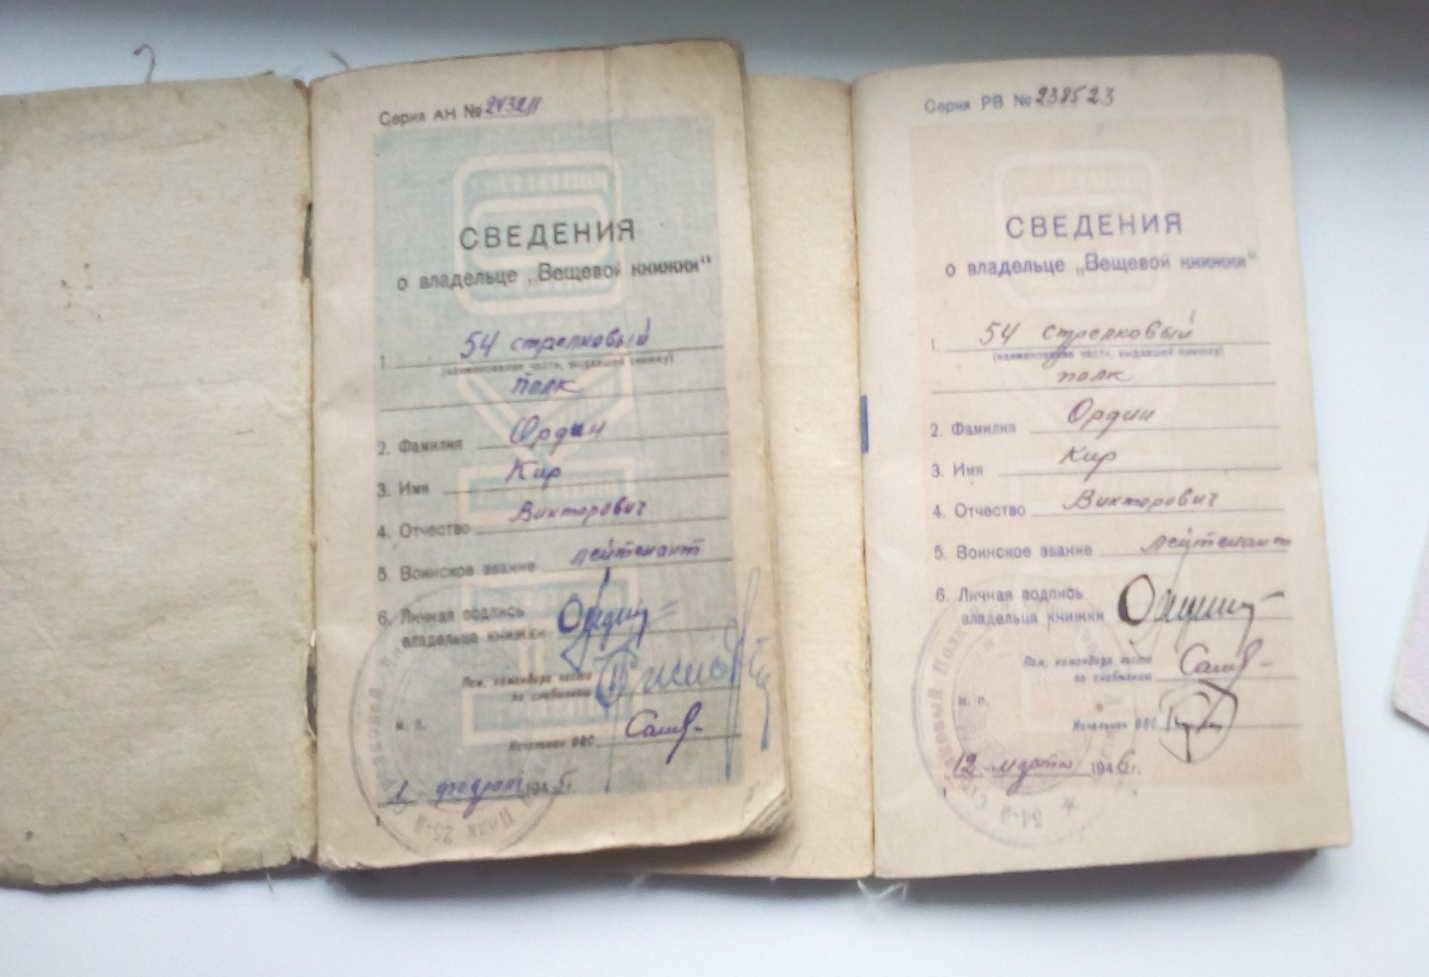 Серия АН № 243211
СВЕДЕНИЯ
о владельце „Вещевой книжки“
1. 54 стрелковый
(наименование части, выдавшей книжку)
полк
2. Фамилия Ордин
3. Имя Кир
4. Отчество Викторович
5. Воинское звание лейтенант
6. Личная подпись
владельца книжки
Пом. командира части
по снабжению
м. п.
Начальник ОВС
1 феврал 1945г.
Серия РВ № 238523
СВЕДЕНИЯ
о владельце „Вещевой книжки“
1. 54 стрелковый
(наименование части, выдавшей книжку)
полк
2. Фамилия Ордин
3. Имя Кир
4. Отчество Викторович
5. Воинское звание лейтенант
6. Личная подпись
владельца книжки
Пом. командира части
по снабжению
м. п.
Начальник ОВС
12 марта 1946г.